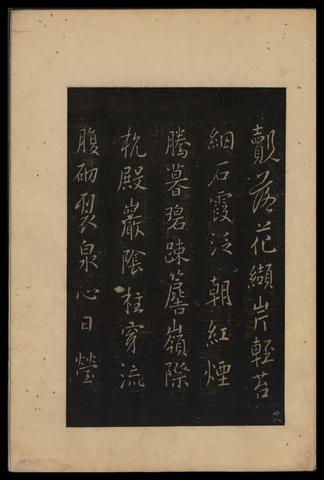 覿落花纈岸輕苔
網石霞泛朝紅煙
騰暮碧疎簷嶺際
抗殿巖陰柱穿流
腹砌裂泉心日瑩